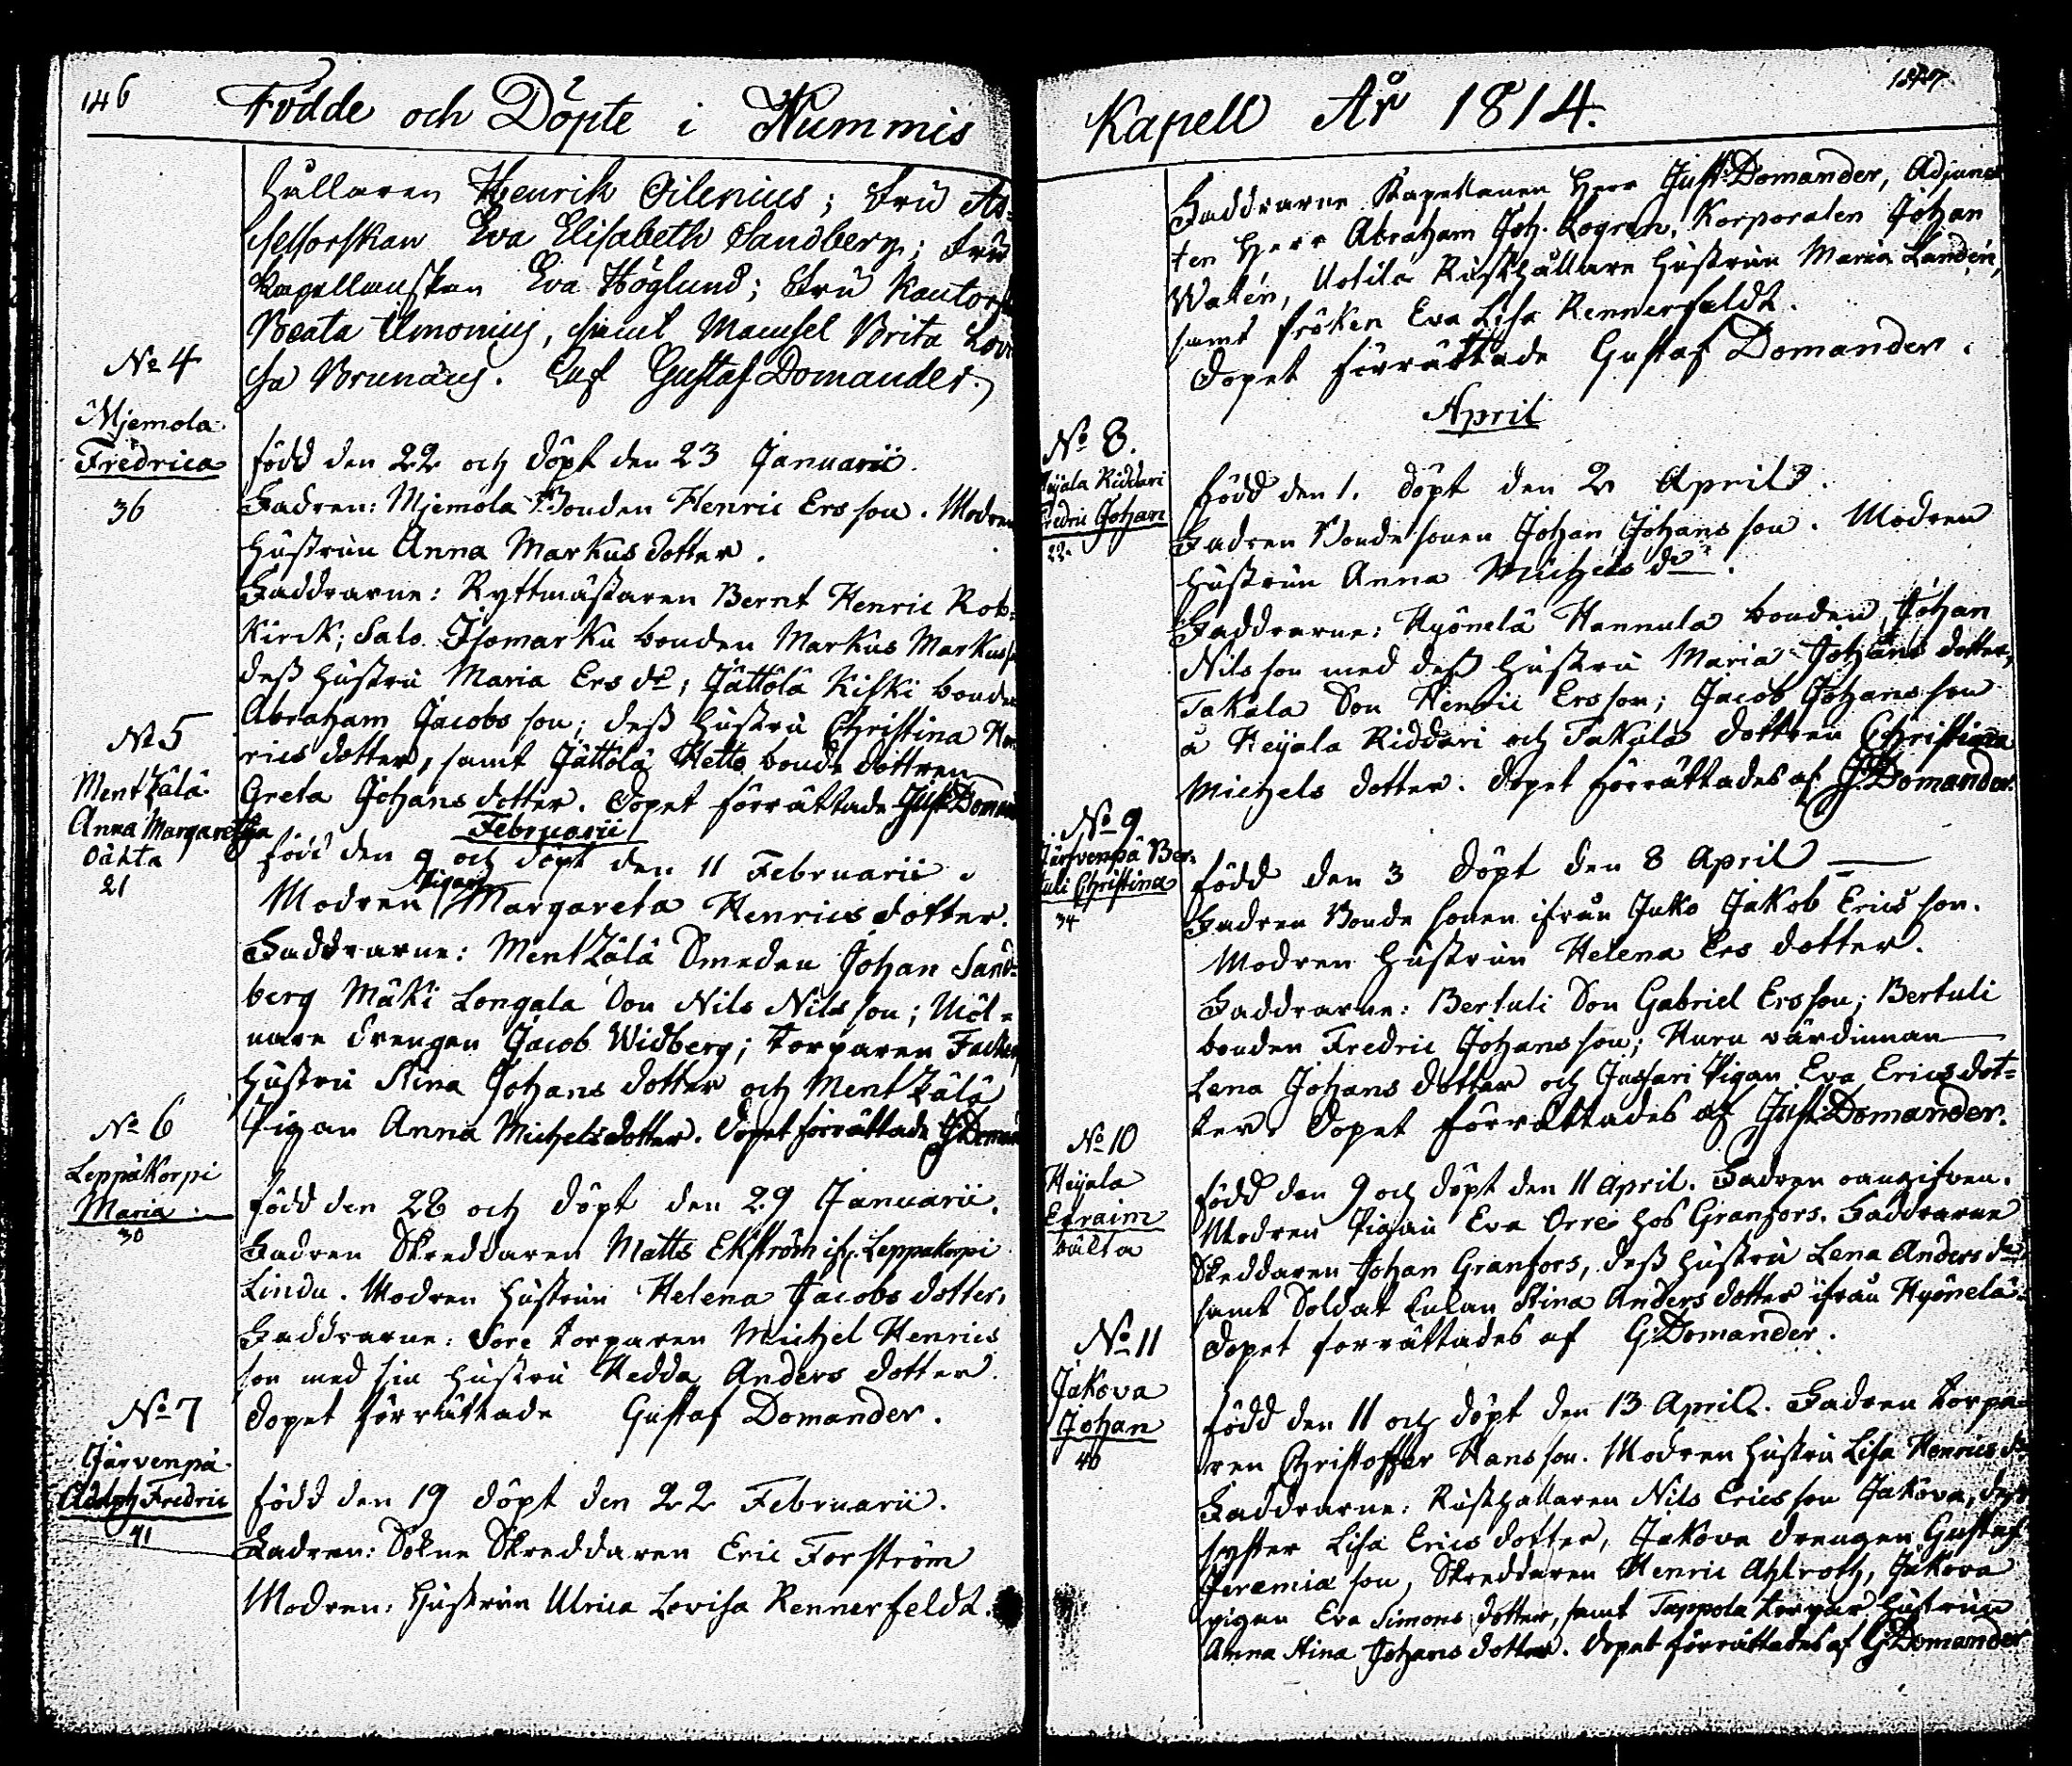 146
Födde och Döpte i Nummis
hållaren Henrik Oilenius; Fru As=
sessorskan Eva Elisabeth Sandberg; Fru
Kapellanskan Eva Höglund; Fru Kantorsk
Beata Limonius, samt Mamsel Brita Lovi
sa Brunæus. Af Gustaf Domander.
No 4
Mjemola
Fredrica
36
född den 22 och döpt den 23 Januarii.
Fadren: Mjemola Bonden Henric Ersson. Modren
hustrun Anna Markusdotter.
Faddrarne: Ryttmästaren Bernt Henric Rot=
kirck; Salo Isomarku bonden Markus Markuss
dess hustru Maria Ers dr; Jättölä Kiski bonden
Abraham Jacobsson; dess hustru Christina Hen
rics dotter, samt Jättölä Hette bonde dottren
Greta Johansdotter. Dopet förrättade Gust. Doman
No 5
Mentzälä
Anna Margaretha
oäkta
21
Februarii
född den 9 och döpt den 11 Februarii.
Modren Pigan Margareta Henricsdotter.
Faddrarne: Mentzälä Smeden Johan Sand=
berg Mäki Longala Son Nils Nilsson; Möl=
nare drengen Jacob Widberg; torparen
hustru Stina Johansdotter och Mentzälä
Pigan Anna Michelsdotter. Dopet förrättade G. Doman
No 6
Leppäkorpi
Maria
30
född den 28 och döpt den 29 Januarii.
Fadren Skreddaren Matts Ekström ifr. Leppäkorpi
Lindu. Modren hustrun Helena Jacobsdotter.
Faddrarne: Sore torparen Michel Henrics
son med sin hustru Hedda Andersdotter.
Dopet förrättade Gustaf Domander.
No 7
Järvenpä
Adolph Fredric
41
född den 19 döpt den 22 Februarii.
Fadren: Sokne Skreddaren Eric Forström
Modren: hustrun Ulrica Lovisa Rennerfeldt.
147
Kapell År 1814.
Faddrarne Kapellanen Herr Gust. Domander, Adjunc
ten Herr Abraham Joh. Logren, Korporalen Johan
Walen, Uotila Rusthållare hustrun Maria Landén,
samt fröken Eva Lisa Rennerfeldt.
Dopet förrättade Gustaf Domander.
April
No 8.
Heijala Riddari
Fredric Johan
22.
född den 1. döpt den 2 April.
Fadren Bondesonen Johan Johansson. Modren
hustrun Anna Michels dr.
Faddrarne: Hyönelä Hannula bonden Johan
Nilsson med dess hustru Maria Johansdotter,
Takala Son Henric Ersson; Jacob Johansson
å Heijala Riddari och Takala dottren Christina
Michels dotter. Dopet förrättades af G. Domander.
No 9
Järfvenpä Ber=
tuli Christina
34
född den 3 döpt den 8 April
Fadren Bonde sonen ifrån Juko Jakob Ericsson.
Modren hustrun Helena Ersdotter.
Faddrarne: Bertuli Son Gabriel Ersson; Bertuli
bonden Fredric Johansson; Huru värdinnan
Lena Johansdotter och Jussari Pigan Eva Ericsdot=
ter. Dopet förrättades af Gust. Domander.
No 10
Heijala
Efraim
oäkta
född den 9 och döpt den 11 April. Fadren oangifven.
Modren Pigan Eva Orre hos Granfors. Faddrarne
Skeddaren Johan Granfors, dess hustru Lena Anders dr
samt Soldat Enkan Stina Andersdotter ifrån Hyönelä.
Dopet forrättades af G. Domander.
No 11
Jakova
Johan
40
född den 11 och döpt den 13 April. Fadren torpa=
ren Christoffer Hansson. Modren hustru Lisa Henrics dr
Faddrarne: Rusthållaren Nils Ericsson Jakova, dess
syster Lisa Ericsdotter, Jakova drengen Gustaf
Jeremiason, Skreddaren Henric Ahlroth, Jakova
pigan Eva Simonsdotter, samt Tappola torpar hustrun
Anna Stina Johansdotter. Dopet förrättades af G. Domander